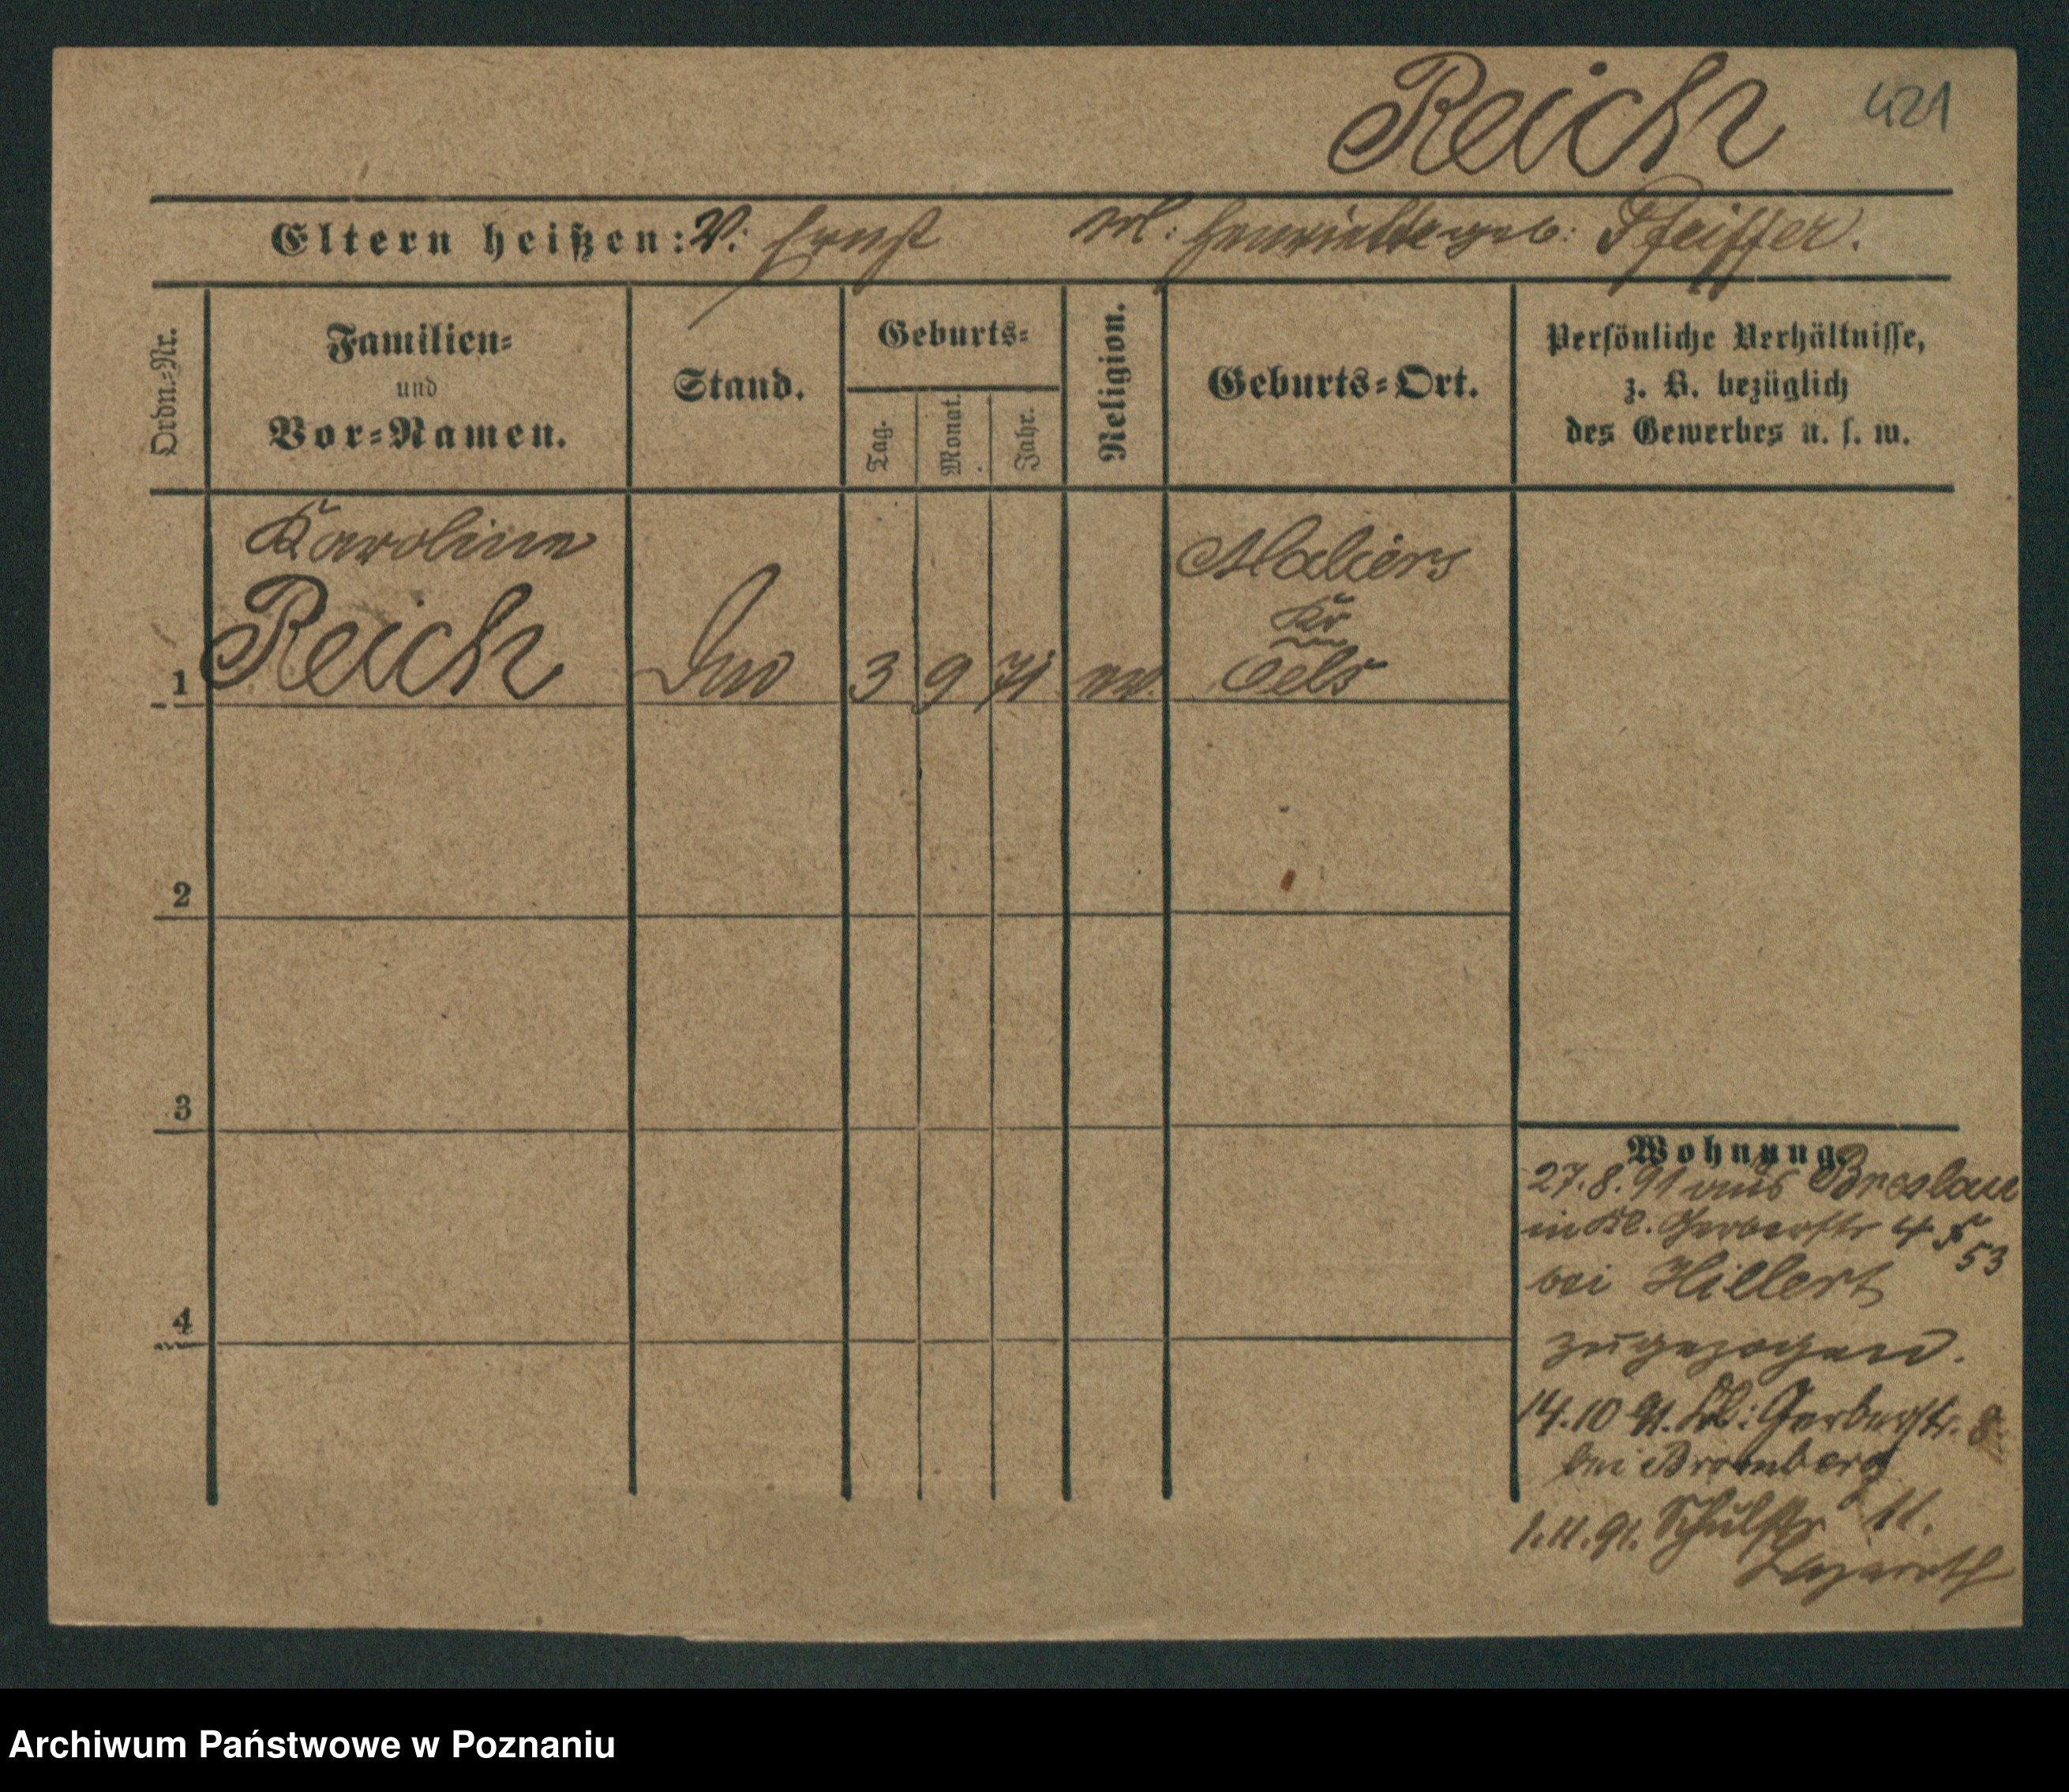 Reich 421
Eltern heißen: V: Ernst M: Henriette geb: Pfeiffer.
Ordn.-Nr.
Familien-
und
Vor-Namen.
Stand.
Geburts-
Tag.
Monat.
Jahr.
Religion.
Geburts-Ort.
Persönliche Verhältnisse,
z. B. bezüglich
des Gewerbes u. s. w.
Karoline
Reich
1
3 9 71
Maliers
Kr
Oels
2
3
4
Wohnung.
27.8.91 aus Breslau
in Kl. Gerberstr 4
53
bei Hillert
zugezogen.
14.10 91. Kl: Gerberstr. 8
bei Bromberg
1.11.91. Schulstr 11.
Lazareth
Archiwum Państwowe w Poznaniu